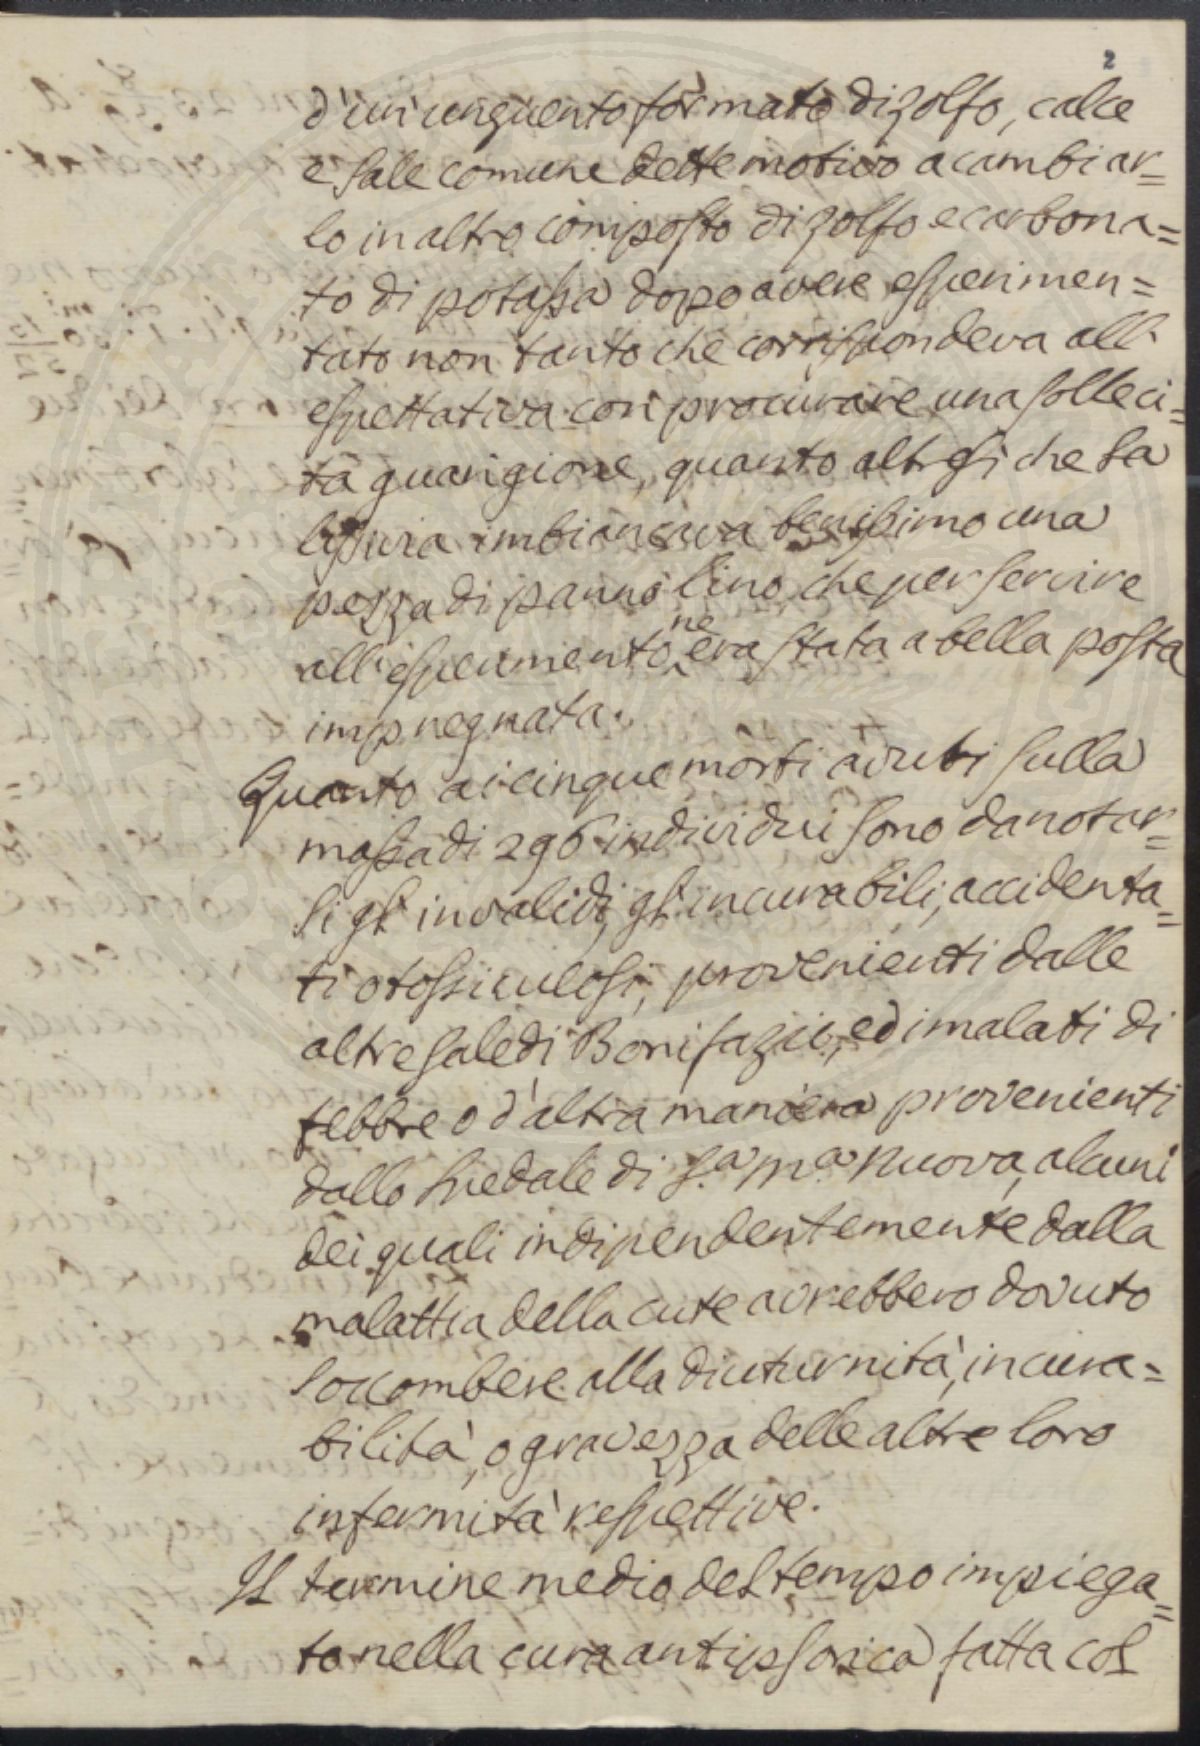 2
d'un'unguento formato di zolfo, calce
e sale comune dette motivo a cambiar=
lo in altro composto di zolfo e carbona=
to di potassa dopo avere esperimen=
tato non tanto che corrispondeva all'
espettativa con procurare una solleci=
ta guarigione, quanto altresì che la
lisivia imbiancava benissimo una
pezza di panno lino, che per servire
all'esperimento ne era stata a bella posta
impregnata.
Quanto ai cinque morti avuti sulla
massa di 296 individui sono da notar=
si gl'invalidi, gl'incurabili, accidenta=
ti o tossiculosi, provenienti dalle
altre sale di Bonifazio, ed i malati di
febbre o d'altra maniera provenienti
dallo Spedale di S.a M.a Nuova, alcuni
dei quali indipendentemente dalla
malattia della cute avrebbero dovuto
soccombere alla diuturnità, incura=
bilità, o gravezza delle altre loro
infermità respettive.
Il termine medio del tempo impiega=
to nella cura antipsorica fatta col